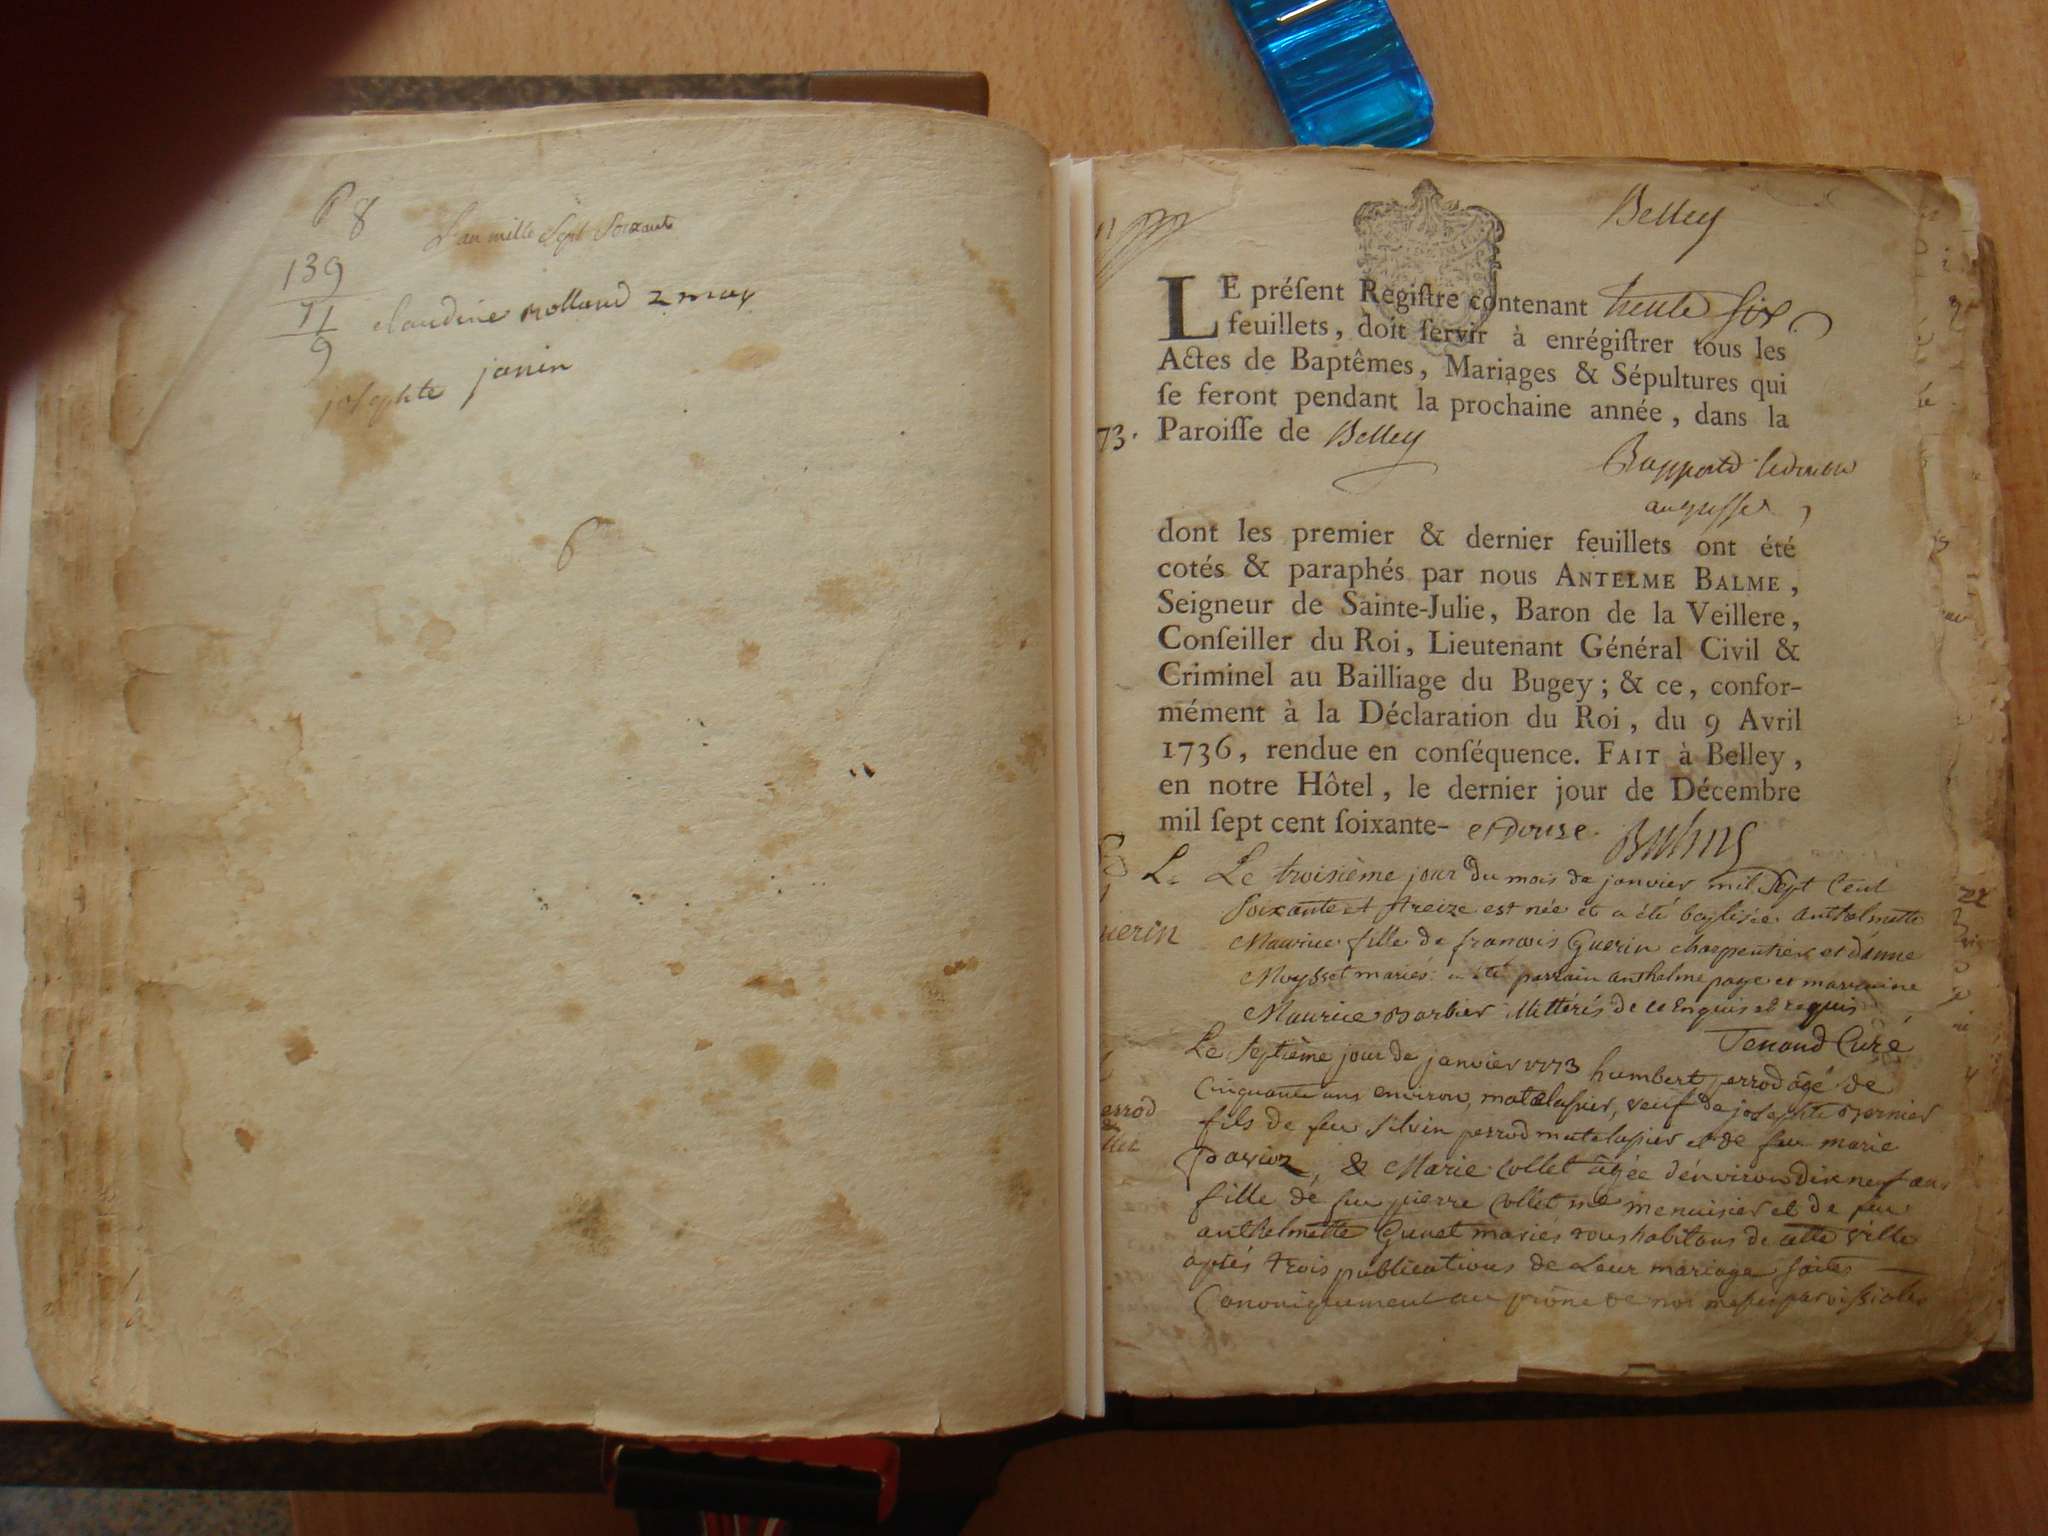 P 8
L'an mille Sept Soixante
139
71
9
claudine Rolland 2 may
josephte janin
P
Belley
LE préſent Regiſtre contenant trente six
feuillets, doit ſervir à enrégiſtrer tous les
Actes de Baptêmes, Mariages & Sépultures qui
ſe feront pendant la prochaine année, dans la
73.
Paroiſſe de Belley
Rapporté
au greffe
dont les premier & dernier feuillets ont été
cotés & paraphés par nous ANTELME BALME,
Seigneur de Sainte-Julie, Baron de la Veillere,
Conſeiller du Roi, Lieutenant Général Civil &
Criminel au Bailliage du Bugey; & ce, confor-
mément à la Déclaration du Roi, du 9 Avril
1736, rendue en conſéquence. FAIT à Belley,
en notre Hôtel, le dernier jour de Décembre
mil ſept cent ſoixante- et douze.
Le troisième jour du mois de janvier mil Sept Cent
Soixante et treize est née et a été baptisée anthelmette
uerin
Maurice fille de françois Guerin charpentier et d'anne
Moysset mariés a été parrain anthelme page et marraine
Maurice Barbier illittérés de ce Enquis et requis
Tenand Curé
Le Septième jour de janvier 1773 humbert perrod âgé de
Cinquante ans environ, matelassier, veuf de josephte Bernier
errod
fils de feu Silvin perrod matelassier et de feu marie
& Marie Collet âgée d'environ dixneuf ans
fille de feu pierre Collet me menuisier et de feu
anthelmette Guret mariés tous habitans de cette ville
après trois publications de Leur mariage faites
Canoniquement au prône de nos messes paroissiales